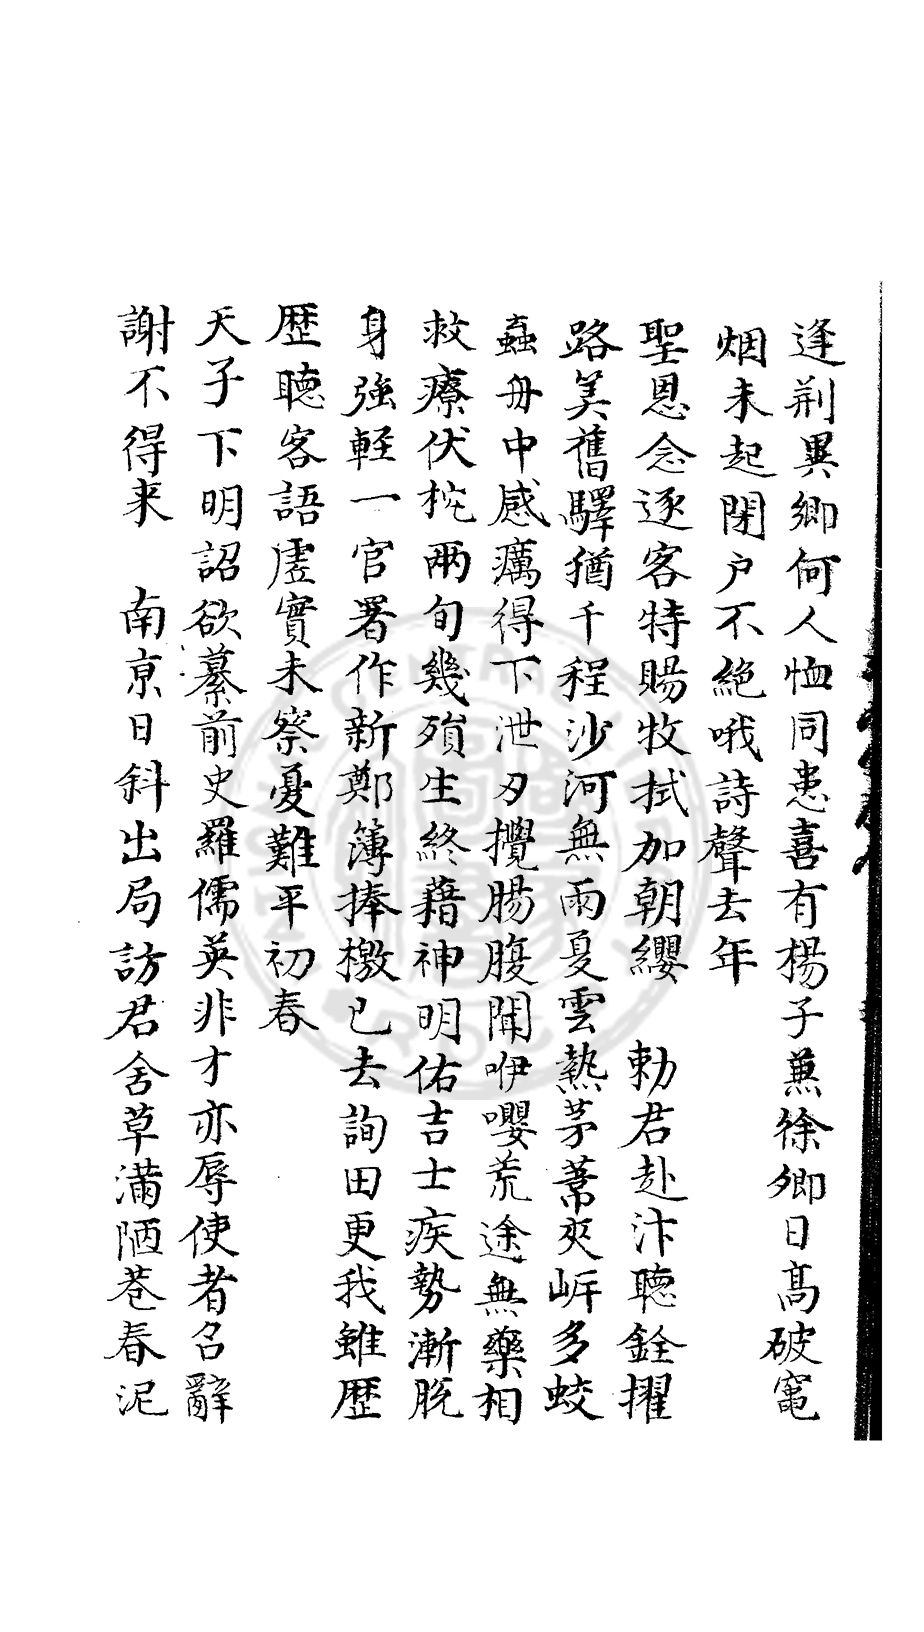 逢荆異鄉何人恤同患喜有楊子蕪徐卿日髙破竃
烟未起閉户不絶哦詩聲去年
聖恩念逐客特賜牧拭加朝纓　勅君赴汴聽銓擢
路羙舊驛猶千程沙河無雨夏雲熱茅葦夾岍多蛟
蝱舟中感癘得下泄刃攪腸腹聞咿嚶荒途無藥相
救療伏枕兩旬幾殞生終藉神明佑吉士疾勢漸脱
身強軽一官署作新鄭簿捧檄已去詢田更我雖歴
歴聽客語虚實未察憂難平初春
天子下明詔欲纂前史羅儒英非才亦辱使者召辭
謝不得来　南京日斜出局訪君舍草滿陋巷春泥